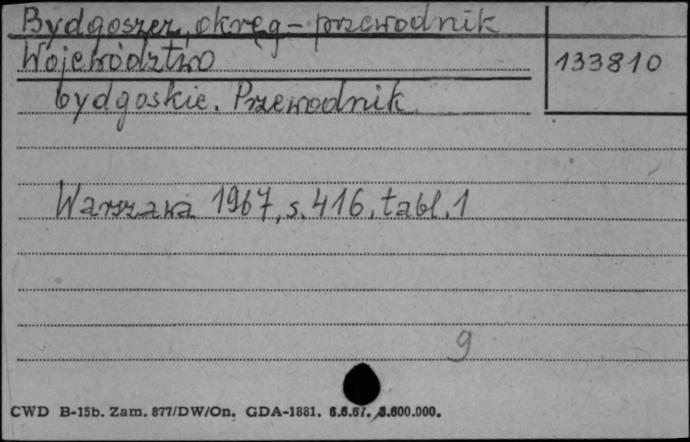 Bydgoszcz, okręg - przewodnik
Województwo
133810
bydgoskie. Przewodnik
Warszawa 1967, s. 416, tabl. 1
9
CWD B-15b. Zam. 877/DW/On. GDA-1881. 6.6.67. 3.600.000.